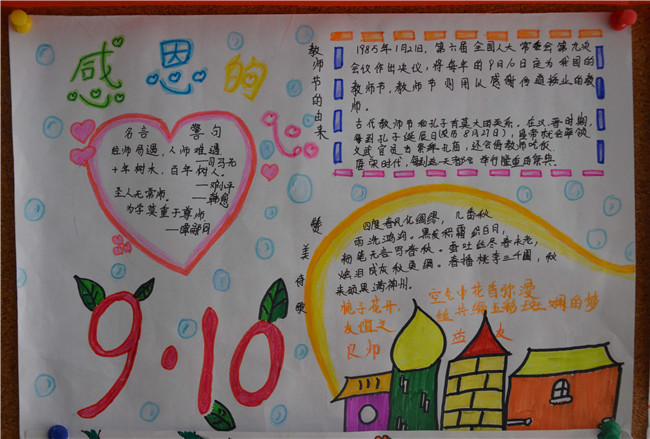 感恩的心
名言 警句
经师易遇,人师难遇
——司马光
十年树木,百年树人。
——邓小平
圣人无常师。——韩愈
为学莫重于尊师
——谭嗣同
9·10
教师节的由来
1985年1月21日,第六届全国人大常委会第九次
会议作出决议,将每年的9月10日定为我国的
教师节,教师节则用以感谢传道授业的教
师。
古代教师节和孔子有莫大的关系,在汉晋时期,
每到孔子诞辰日(农历8月27日),皇帝就会率领
文武官员去祭拜孔庙,还会请教师吃饭。
唐宋时代,每到这天都会举行隆重的祭典。
赞美诗歌
四度春风化绸缪,几番秋
雨洗鸿沟。黑发积霜织日月,
粉笔无言写春秋。蚕吐丝尽春未老,
烛泪成灰秋更稠。春播桃李三千圃,秋
来硕果满神州。
桃子花开,
友谊之
良师
空气中花香弥漫
丝共编五彩斑斓的梦
益友